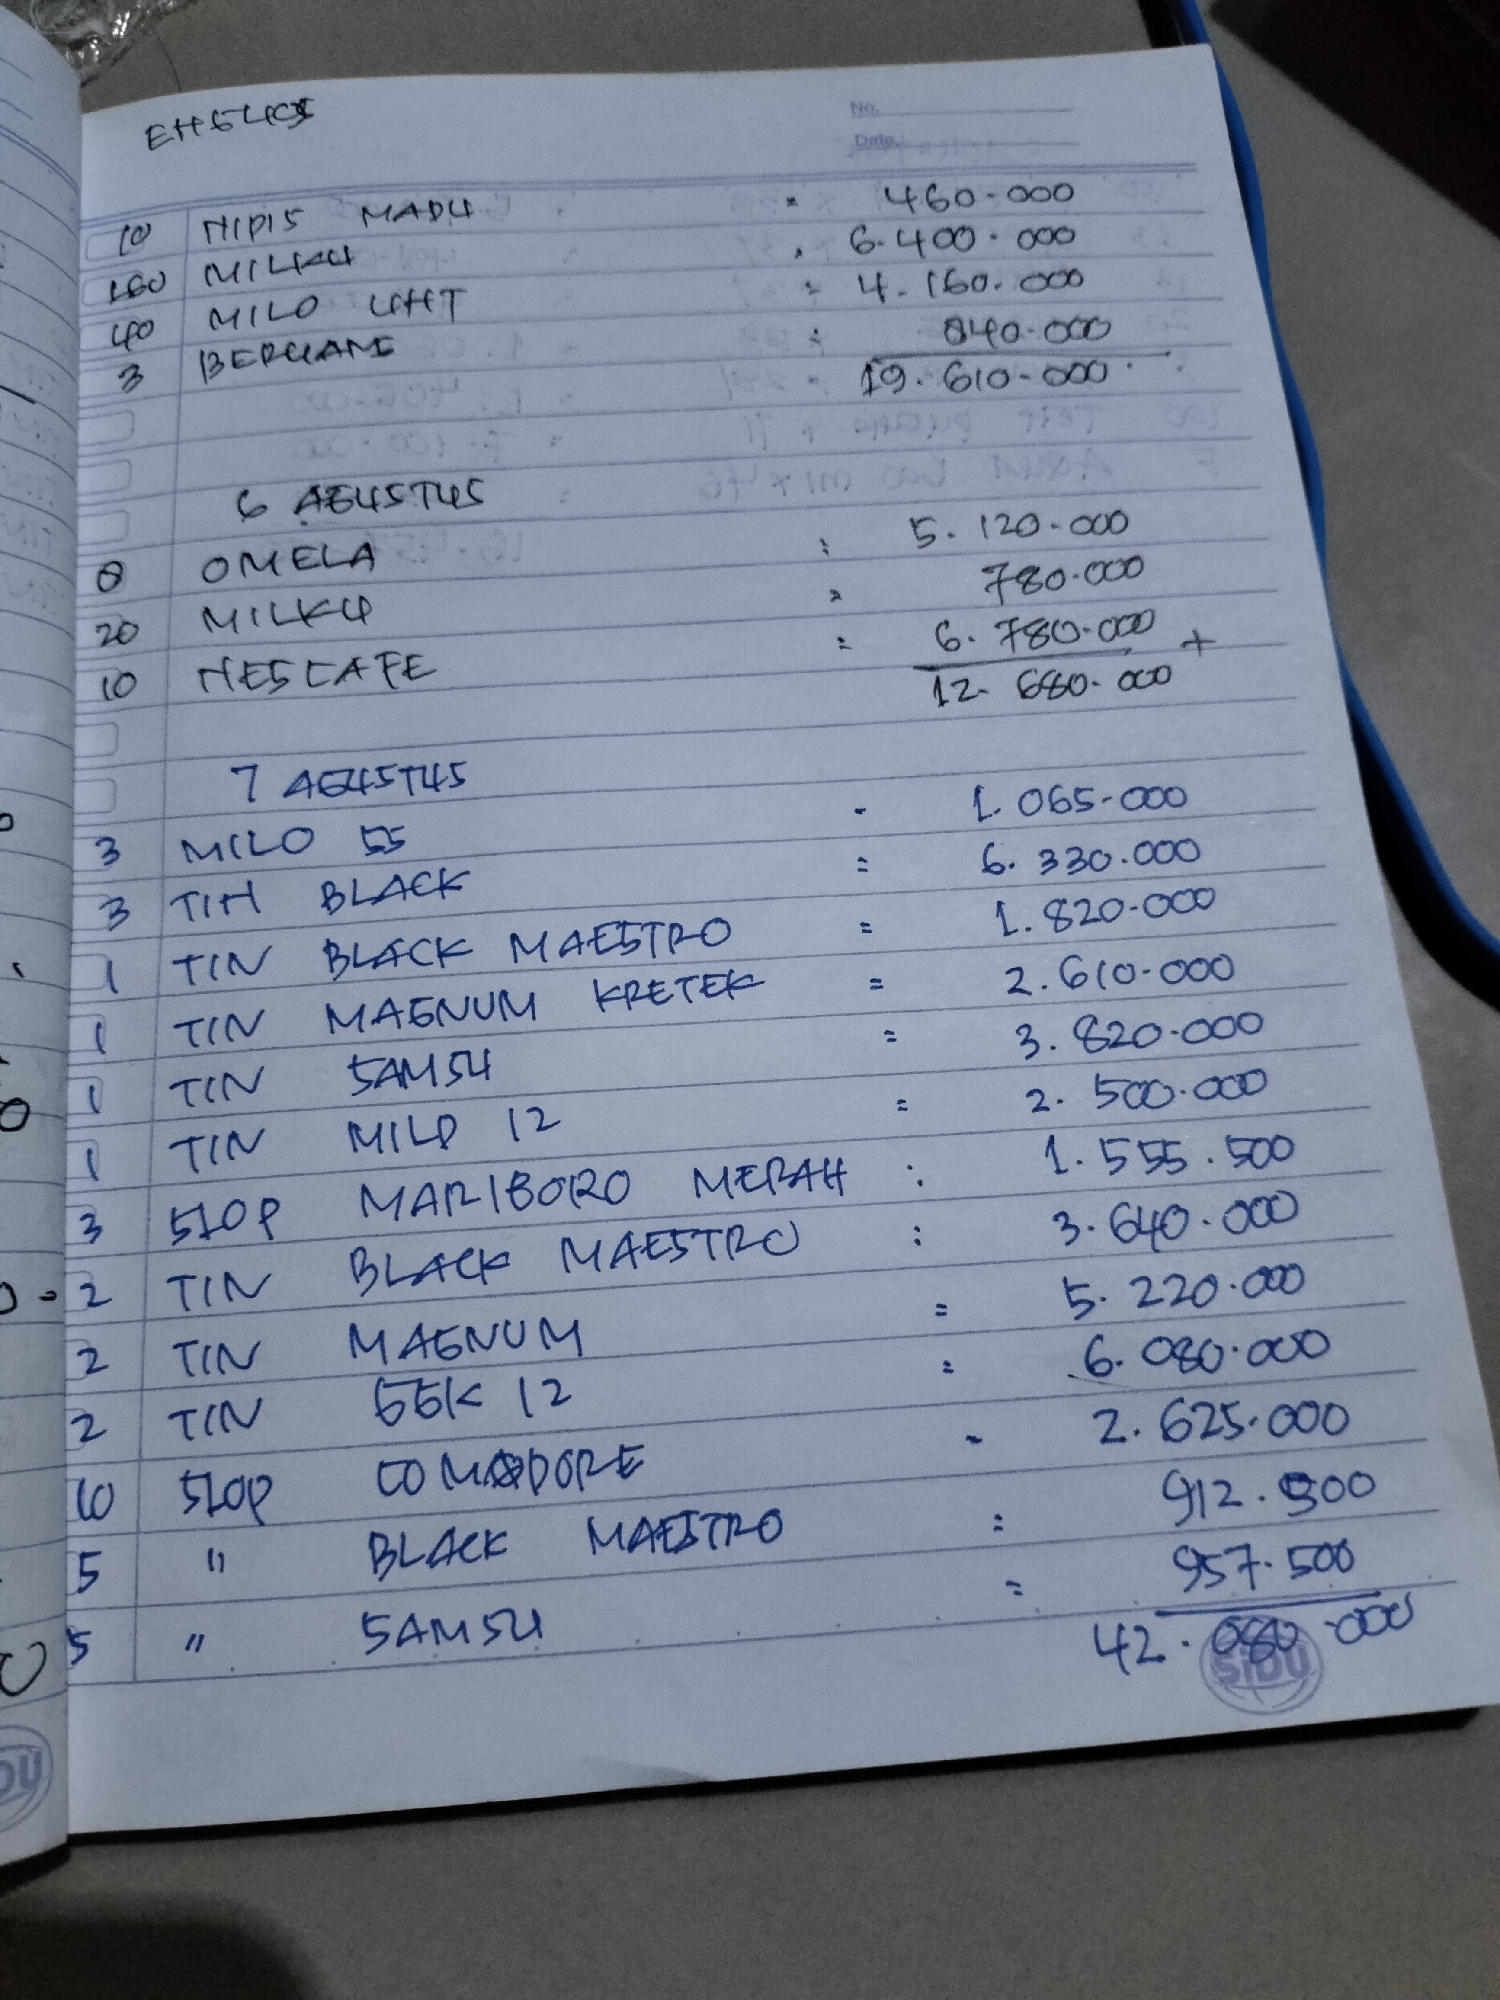 No.
Date.
10 NIPIS MADU = 460.000
160 MILKU = 6.400.000
40 MILO UHT = 4.160.000
3 = 840.000
19.610.000
6 AGUSTUS
8 OMELA = 5.120.000
20 MILKU = 780.000
10 NESCAFE = 6.780.000 +
12.680.000
7 AGUSTUS
3 MILO 55 - 1.065.000
3 TIN BLACK = 6.330.000
1 TIN BLACK MAESTRO = 1.820.000
1 TIN MAGNUM KRETEK = 2.610.000
1 TIN SAMSU = 3.820.000
1 TIN MILD 12 = 2.500.000
3 SLOP MARLBORO MERAH : 1.555.500
2 TIN BLACK MAESTRO : 3.640.000
2 TIN MAGNUM = 5.220.000
2 TIN GGK 12 = 6.080.000
10 SLOP COMADORE - 2.625.000
5 " BLACK MAESTRO = 912.500
5 " SAMSU = 957.500
42.080.000
SiDU